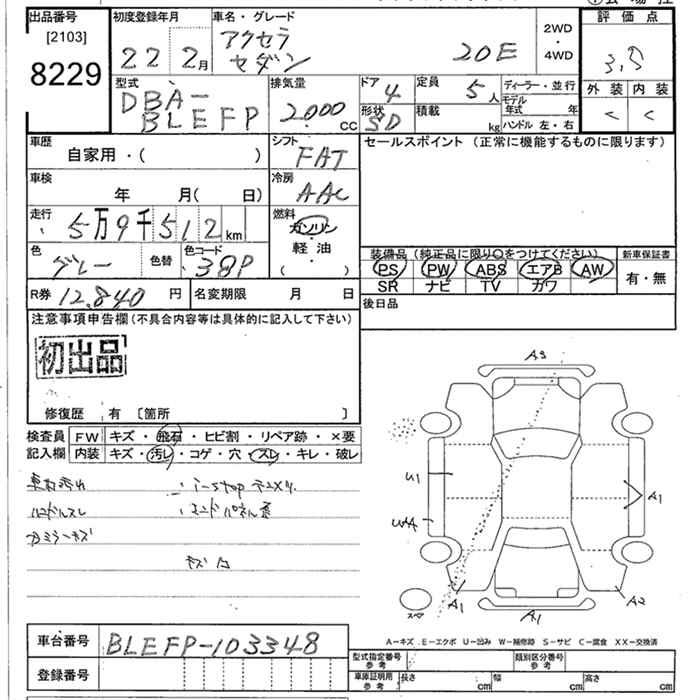 出品番号
[2103]
8229
初度登録年月
22 2月
車名・グレード
アクセラ
セダン
20E
2WD
・
4WD
評価点
3.5
外装 内装
C C
型式
DBA-
BLEFP
排気量
2000 CC
ドア 4
形状 SD
定員 5人
積載 kg
ディーラー・並行
モデル年式 年
ハンドル 左・右
車歴
自家用・( )
シフト
FAT
セールスポイント (正常に機能するものに限ります)
車検
年 月( 日)
冷房
AAC
走行
5万9千512km
燃料
ガソリン
・
軽油
( )
色
グレー
色替
色コード
38P
装備品 (純正品に限り〇をつけてください)
PS PW ABS エアB AW
SR ナビ TV カワ
新車保証書
有・無
R券 12,840円
名変期限 月 日
後日品
注意事項申告欄 (不具合内容等は具体的に記入して下さい)
初出品
修復歴 有 〔箇所 〕
検査員
記入欄
FW キズ・飛石・ヒビ割・リペア跡・×要
内装 キズ・汚レ・コゲ・穴・スレ・キレ・破レ
ハンドルスレ
キズ
A3
U1
A1
A1
A1
A2
スペア
A-キズ E-エクボ U-凹み W-補修跡 S-サビ C-腐食 XX-交換済
車台番号 BLEFP-103348
登録番号
型式指定番号
参考
類別区分番号
参考
車庫証明用
参考
長さ cm 幅 cm 高さ cm